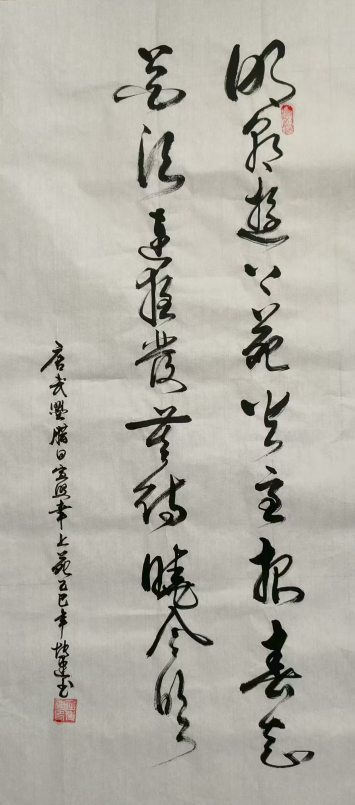 明朝遊上苑火急报春知
花须連夜發莫待曉風吹
唐武曌臘日宣詔幸上苑乙巳年書